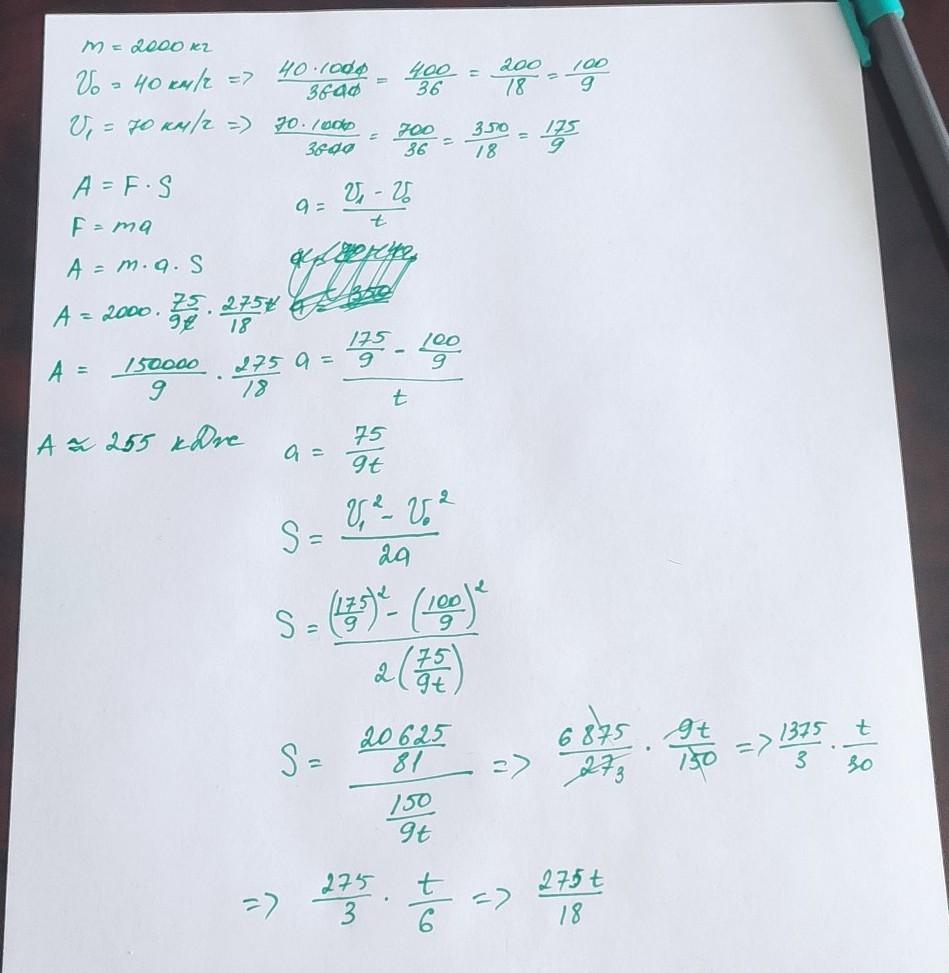 m = 2000 кг
V₀ = 40 км/г => 40·1000/3600 = 400/36 = 200/18 = 100/9
V₁ = 70 км/г => 70·1000/3600 = 700/36 = 350/18 = 175/9
A = F·S
a = (V₁ - V₀)/t
F = ma
A = m·a·S
A = 2000 · 75/9t · 275t/18
A = 150000/9 · 275/18
a = (175/9 - 100/9)/t
A ≈ 255 кДж
a = 75/9t
S = (V₁² - V₀²)/2a
S = ((175/9)² - (100/9)²)/(2(75/9t))
S = (20625/81)/(150/9t) => 6875/27 3 · 9t/150 => 1375/3 · t/30
=> 275/3 · t/6 => 275t/18